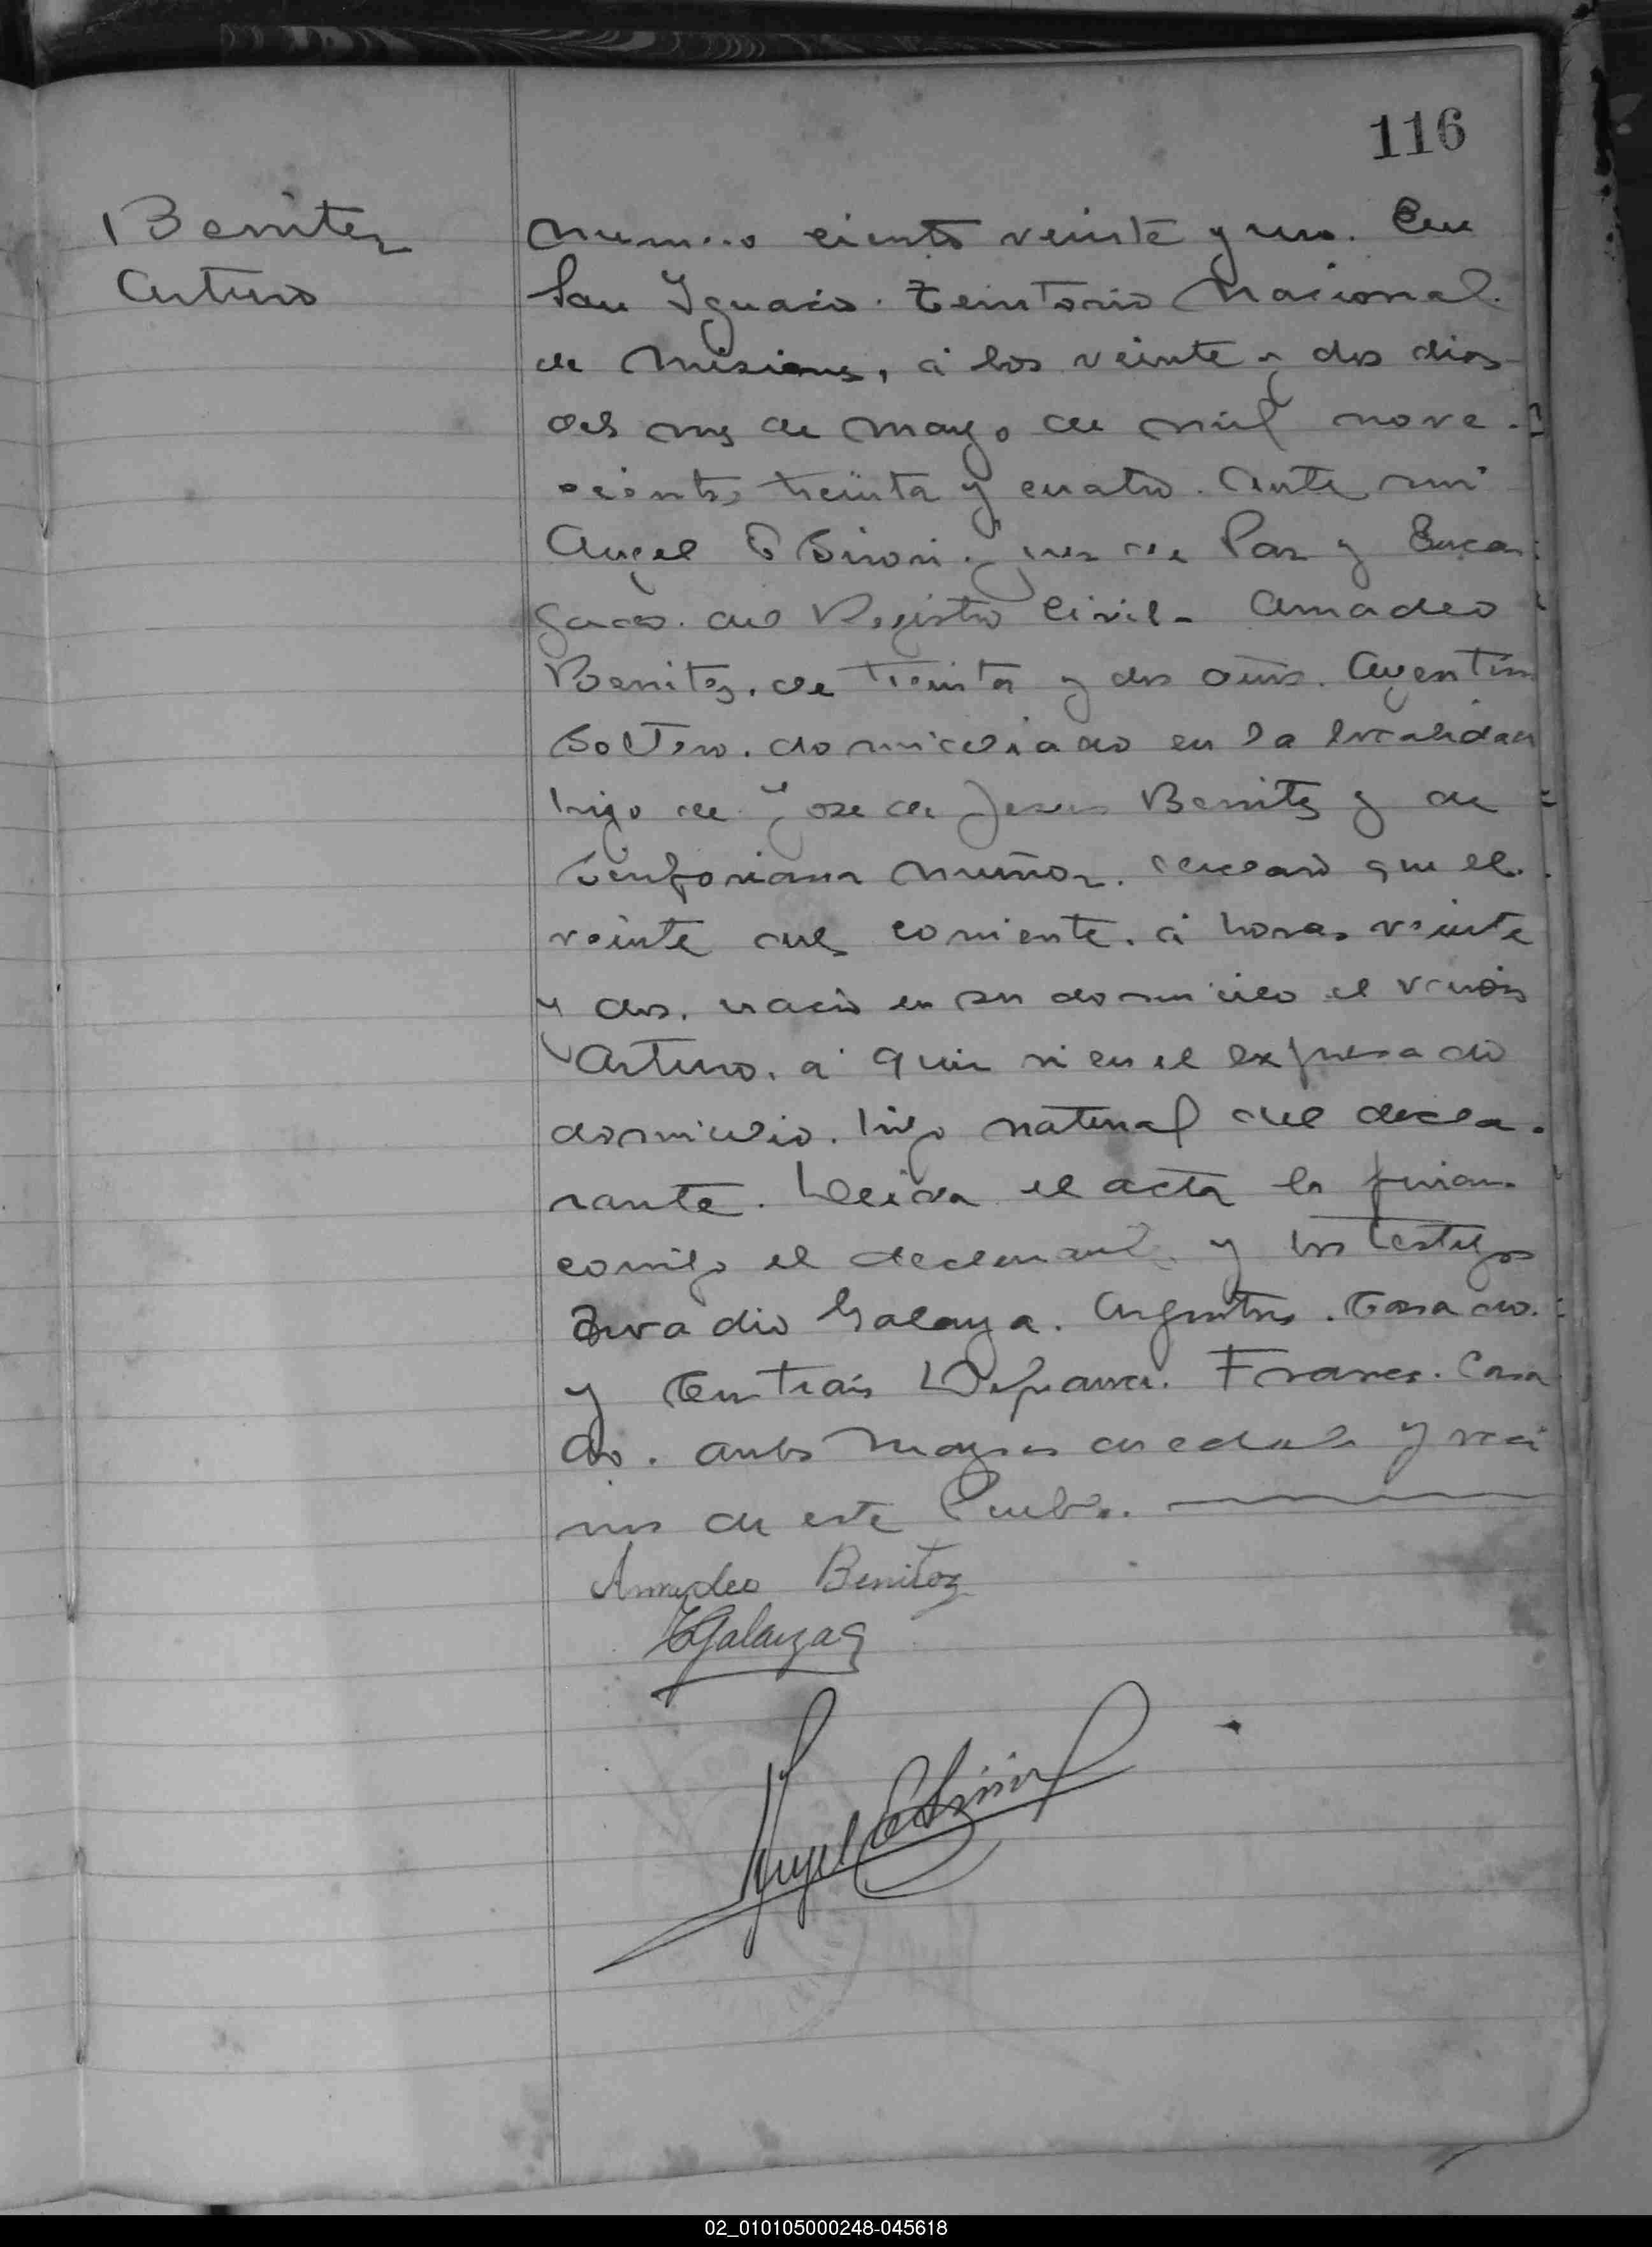 116
Benitez
Arturo
Numero ciento veinte y uno. En
San Ignacio. Territorio Nacional.
de Misiones, á los veinte y dos dias
del mes de Mayo de mil nove-
cientos treinta y cuatro. Ante mi
Angel E Sirori. juez de Paz y Encar-
gado. del Registro Civil- Amadeo
Benitez. de treinta y dos años. Argentino
Soltero. domiciliado en la localidad
hijo de José de Jesus Benitez y de
Sinforiana Muñoz. declaró que el.
veinte del corriente. á horas veinte
y dos. nació en su domicilio el varón
Arturo. a quien vi en el expresado
domicilio. hijo natural del decla-
rante. Leida el acta la firman
conmigo el declarante y los testigos
Galarza. Argentino. Casado.
y Francés. Casa
do. ambos mayores de edad y veci
nos de este Pueblo.
Amadeo Benitez
Galarza
Angel E Sirori
02_010105000248-045618